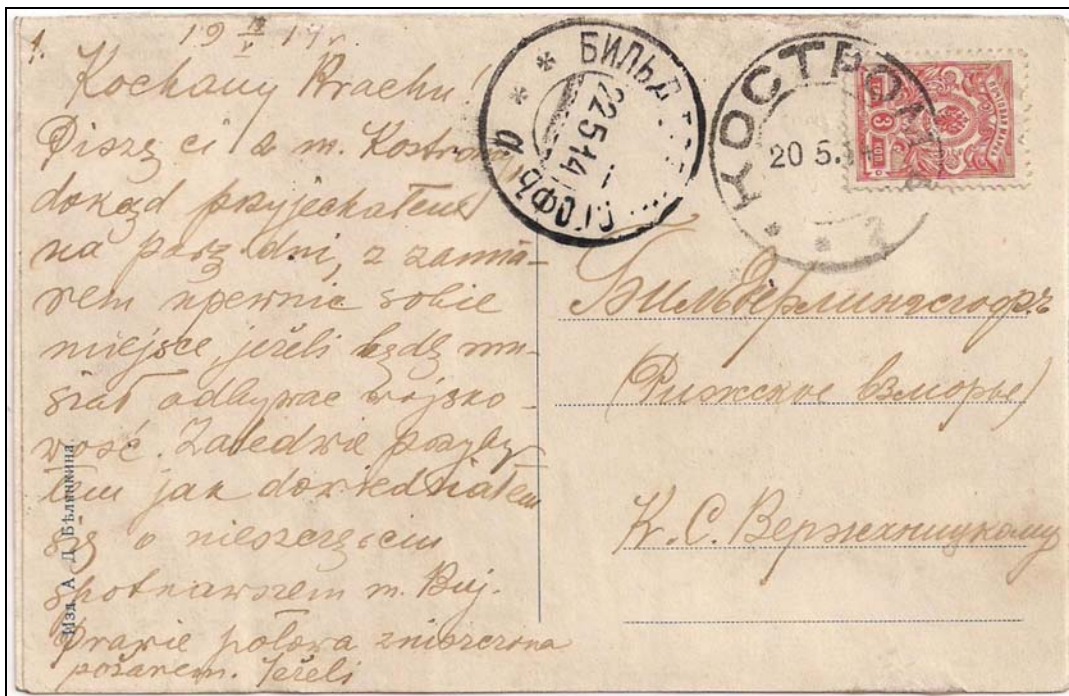 1.
19 19/V 14 r.
Kochany Brachu!
Piszę ci z m. Kostromy
dokąd przyjechałem
na parę dni, z zamia-
rem upewnić sobie
miejsce, jeżeli będę mu-
siał odbywać wojsko-
wość. Zaledwie przyby
łem jak dowiedziałem
się o nieszczęściu
spotkawszem m. Buj.
Prawie połowa zniszczona
pożarem. Jeżeli
Изд. А. Д. Бѣлянкина.
БИЛЬД
22 5 14
ГОФЪ
а
КОСТРОМА
20 5 14
2
ПОЧТОВАЯ МАРКА
3 КОП
Бильдерлингсгофъ
(Рижское взморье)
К. С. Вержхницкому